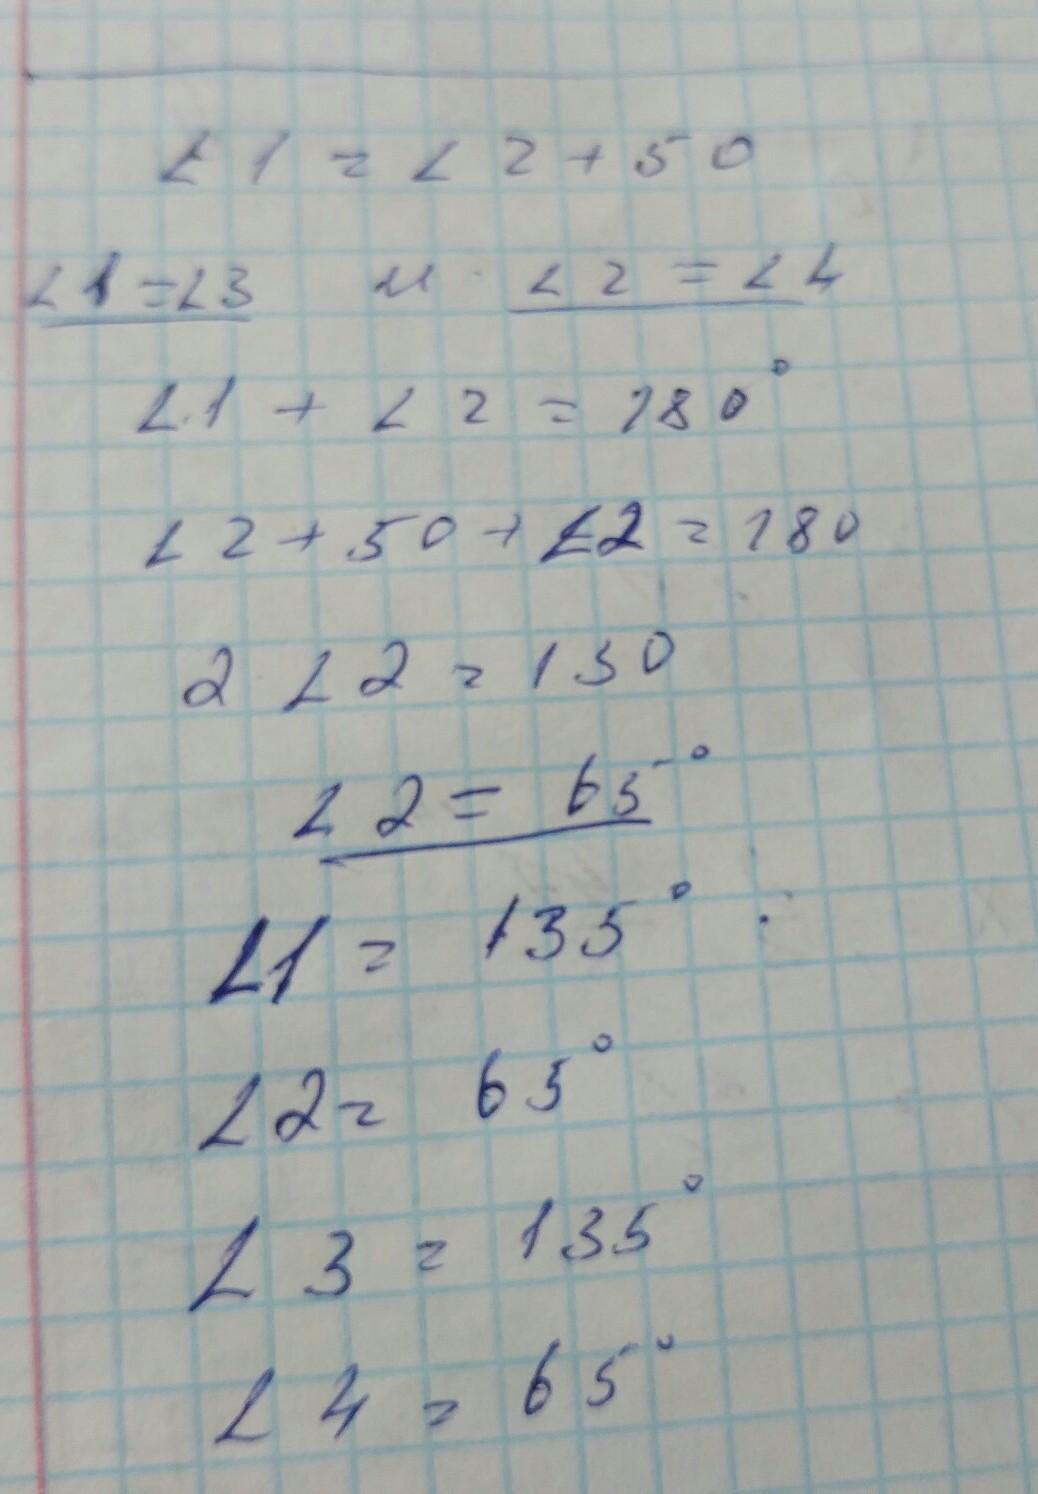 ∠1 = ∠2 + 50
∠1 = ∠3 и ∠2 = ∠4
∠1 + ∠2 = 180°
∠2 + 50 + ∠2 = 180
2 ∠2 = 130
∠2 = 65°
∠1 = 135°
∠2 = 65°
∠3 = 135°
∠4 = 65°